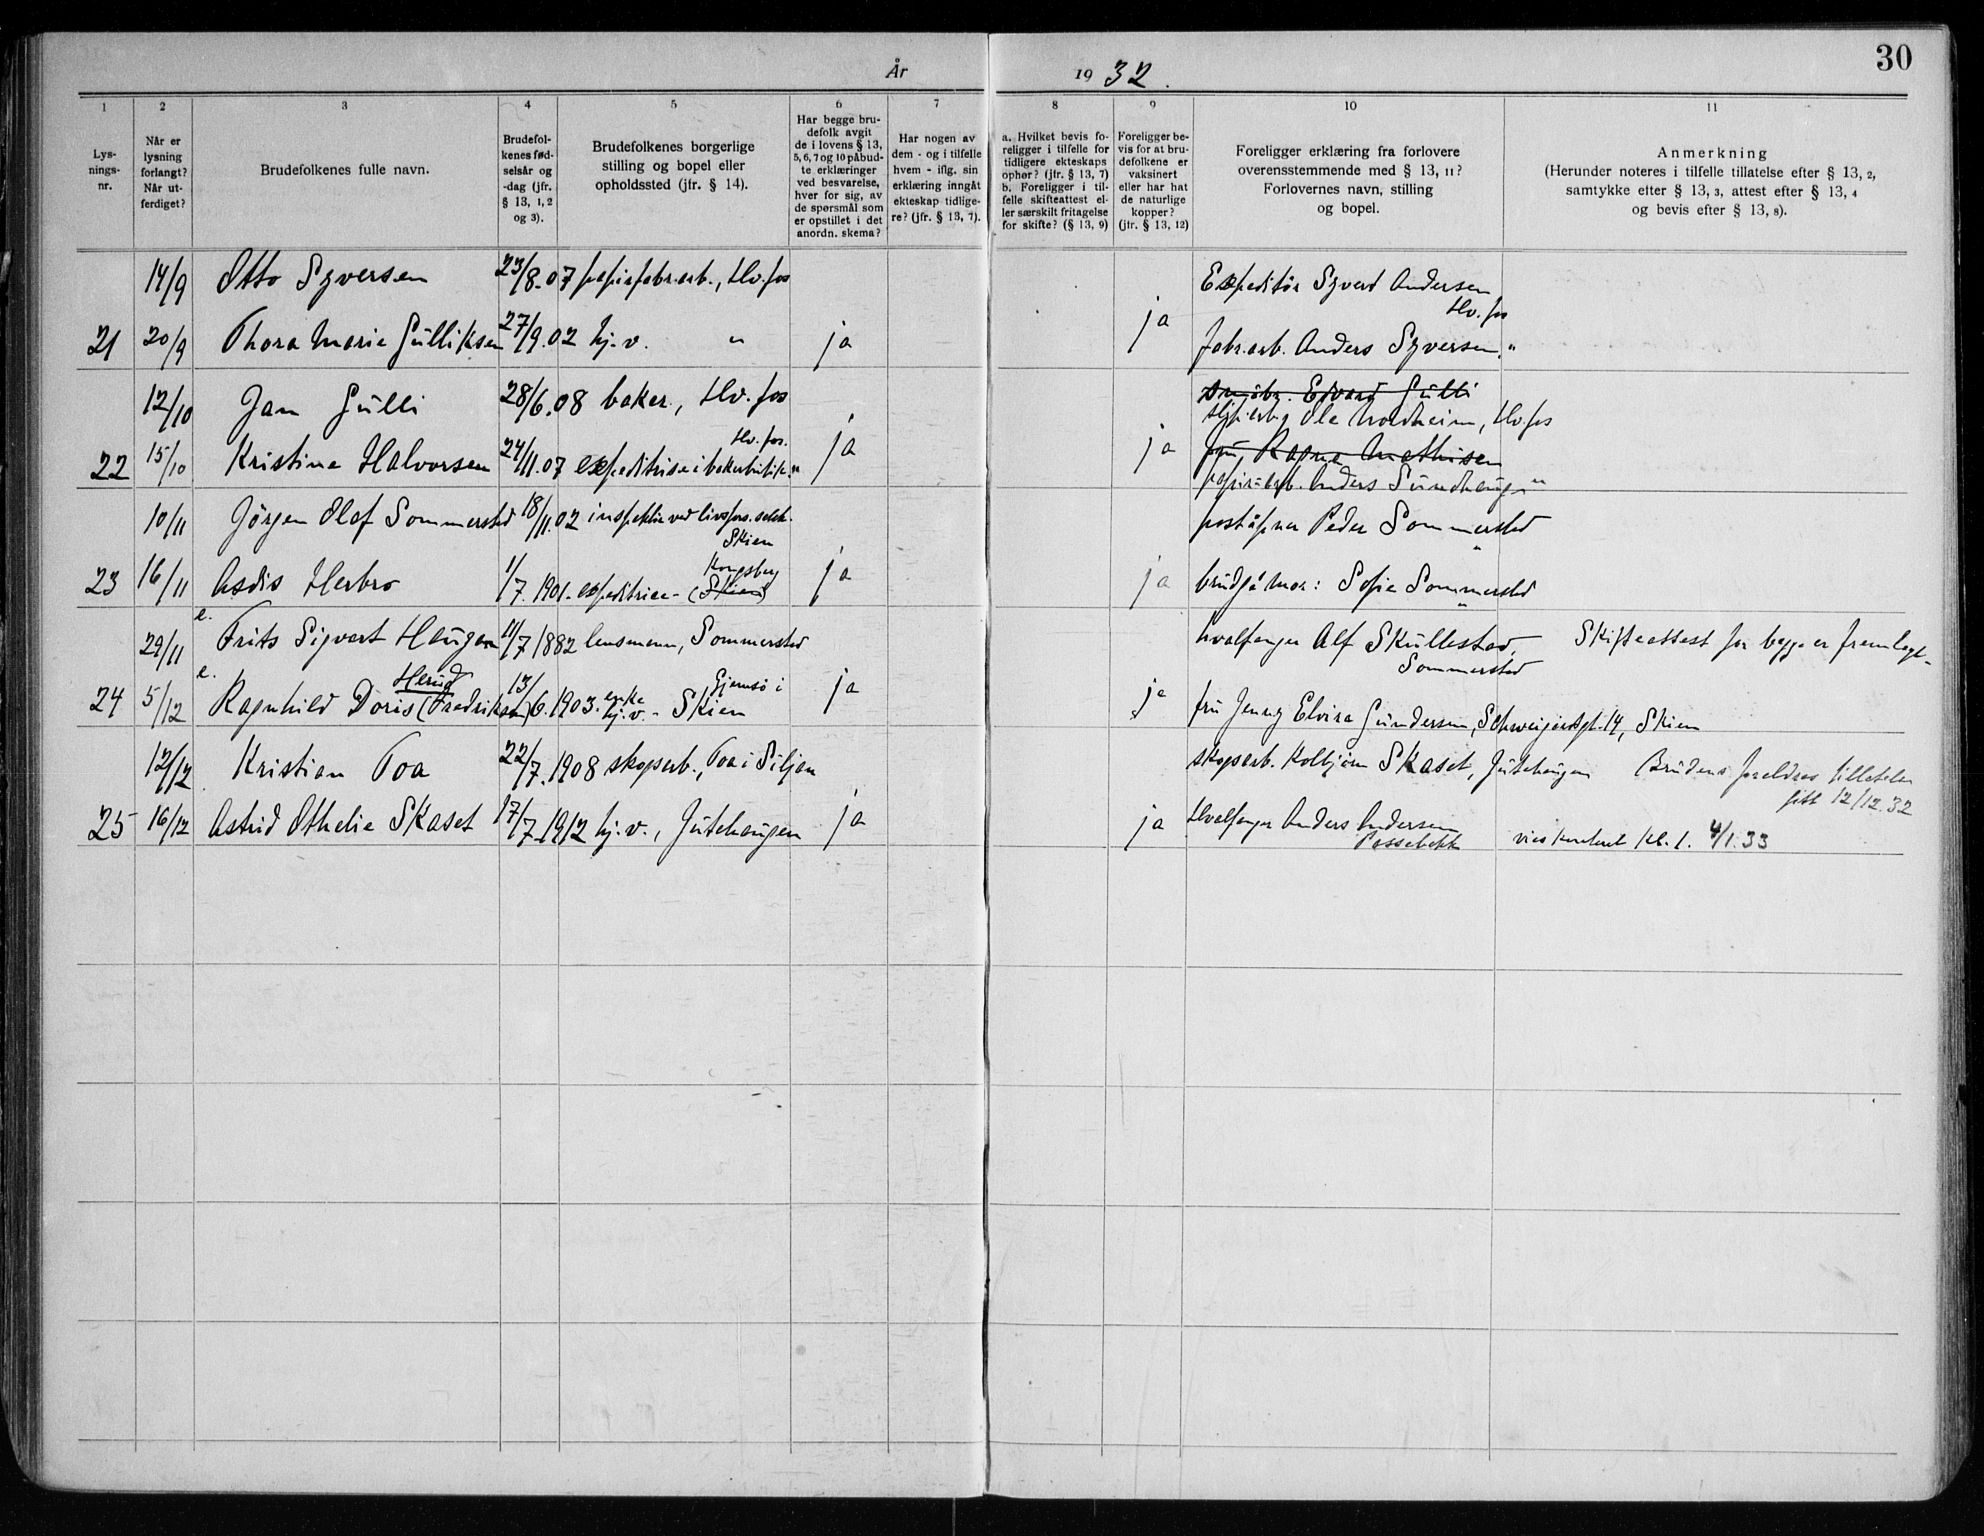 30
År 1932.
1
2
3
4
5
6
7
8
9
10
11
Lys-
nings-
nr.
Når er
lysning
forlangt?
Når ut-
ferdiget?
Brudefolkenes fulle navn.
Brudefol-
kenes fød-
selsår og
-dag (jfr.
§ 13, 1, 2
og 3).
Brudefolkenes borgerlige
stilling og bopel eller
opholdssted (jfr. § 14).
Har begge bru-
defolk avgit
de i lovens § 13,
5, 6, 7 og 10 påbud-
te erklæringer
ved besvarelse,
hver for sig, av
de spørsmål som
er opstillet i det
anordn. skema?
Har nogen av
dem - og i tilfelle
hvem - iflg. sin
erklæring inngått
ekteskap tidlige-
re? (jfr. § 13, 7).
a. Hvilket bevis fo-
religger i tilfelle for
tidligere ekteskaps
ophør? (jfr. § 13, 7)
b. Foreligger i til-
felle skifteattest el-
ler særskilt fritagelse
for skifte? (§ 13, 9)
Foreligger be-
vis for at bru-
defolkene er
vaksinert
eller har hat
de naturlige
kopper?
(jfr. § 13, 12)
Foreligger erklæring fra forlovere
overensstemmende med § 13, 11?
Forlovernes navn, stilling
og bopel.
Anmerkning
(Herunder noteres i tilfelle tillatelse efter § 13, 2,
samtykke efter § 13, 3, attest efter § 13, 4
og bevis efter § 13, 8).
14/9 Otto Syversen 23/8.07 papirfabr.arb., Hv.fos Expeditør Syverd Andersen
Hv.fos
21 20/9 Thora Marie Gulliksen 27/9.02 hj.v. " ja ja fabr.arb. Anders Syversen "
12/10 Jan Gulli 28/6.08 baker, Hv.fos Edvard Gulli
Ole Nordheim, Hv.fos
Hv.fos.
22 15/10 Kristine Halvorsen 24/11.07 expeditrise i bakerbutik " ja ja fru Ragna Mathisen
papir=arb. Anders Sundhaugen "
10/11 Jörgen Olaf Sommersted 18/11.02 inspektør ved livsfors.selsk. poståpner Peder Sommersted
Skien "
Kongsberg
23 16/11 Asdis Herbro 1/7.1901. expeditrice - (Skien) ja ja brudg. mor: Sofie Sommersted
"
29/11 e. Frits Sigvart Haugan 11/7 1882 lensmann, Sommersted hvalfanger Alf Skullestad, Skifteattest for begge er fremlagt.
Sommersted
Herud Gjemsö i
24 5/12 e. Ragnhild Doris (Fredriksen) 13/6.1903. enke hj.v. - Skien ja ja fru Jenny Elvira Gundersen, Schweigaardsgt. 14, Skien
12/12 Kristian Toa 22/7.1908 skogarb., Toa i Siljan skogarb. Kolbjørn Skaset, Jutehaugen Brudens foreldres tillatelse
gitt 12/12.32
25 16/12 Astrid Othelie Skaset 17/7.1912 hj.v., Jutehaugen ja ja Hvalfanger Anders Andersen
Passebekk
vies kontoret kl. 1. 4/1.33